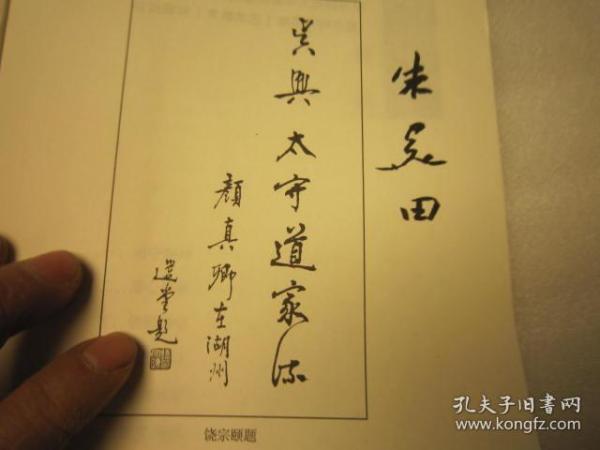 朱
田
吴興太守道家流
顏真卿在湖州
選堂題
饶宗颐题
孔夫子旧书网
www.kongfz.com